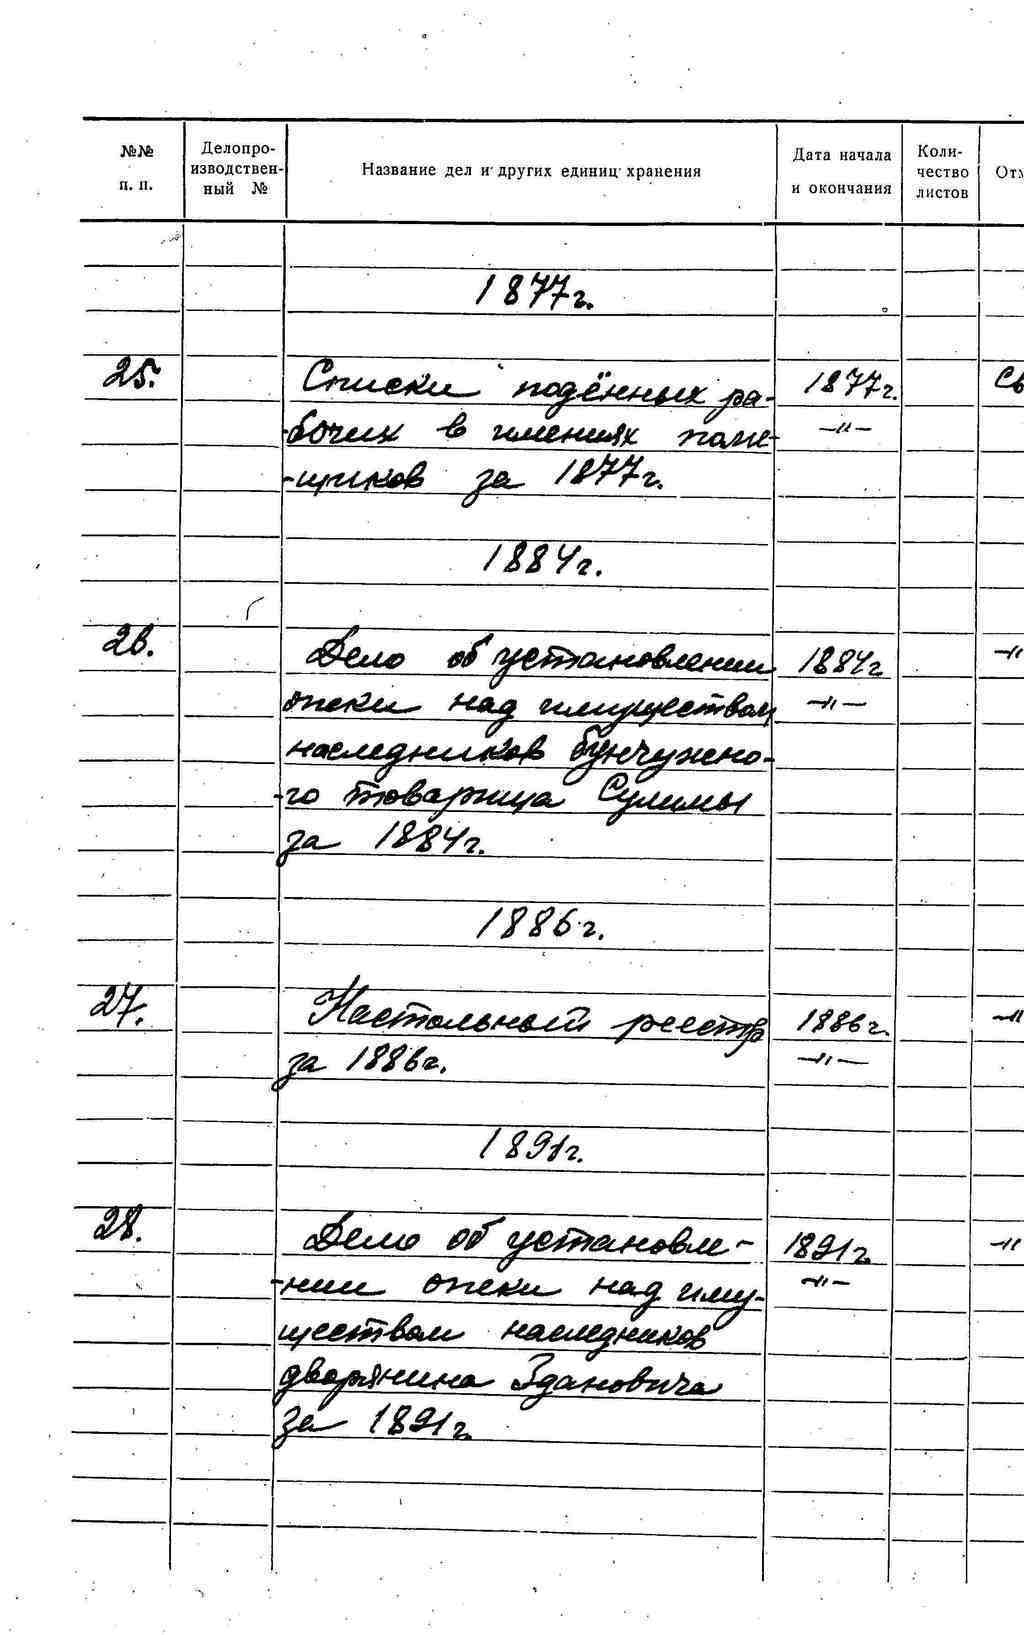 №№ п. п. Делопро-изводствен-ный № Название дел и других единиц хранения Дата начала и окончания Коли-чество листов Отм
1877г.
25. Списки подённых ра- 1877г. Св
-бочих в имениях поме- —"—
-щиков за 1877г.
1884г.
26. Дело об установлении 1884г. —"
опеки над имуществом —"—
наследников бунчужно-
-го товарища Сулимы
за 1884г.
1886г.
27. Настольный реестр 1886г. —"
за 1886г. —"—
1891г.
28. Дело об установле- 1891г. —"
-нии опеки над иму- —"—
ществом наследников
дворянина Здановича
за 1891г.